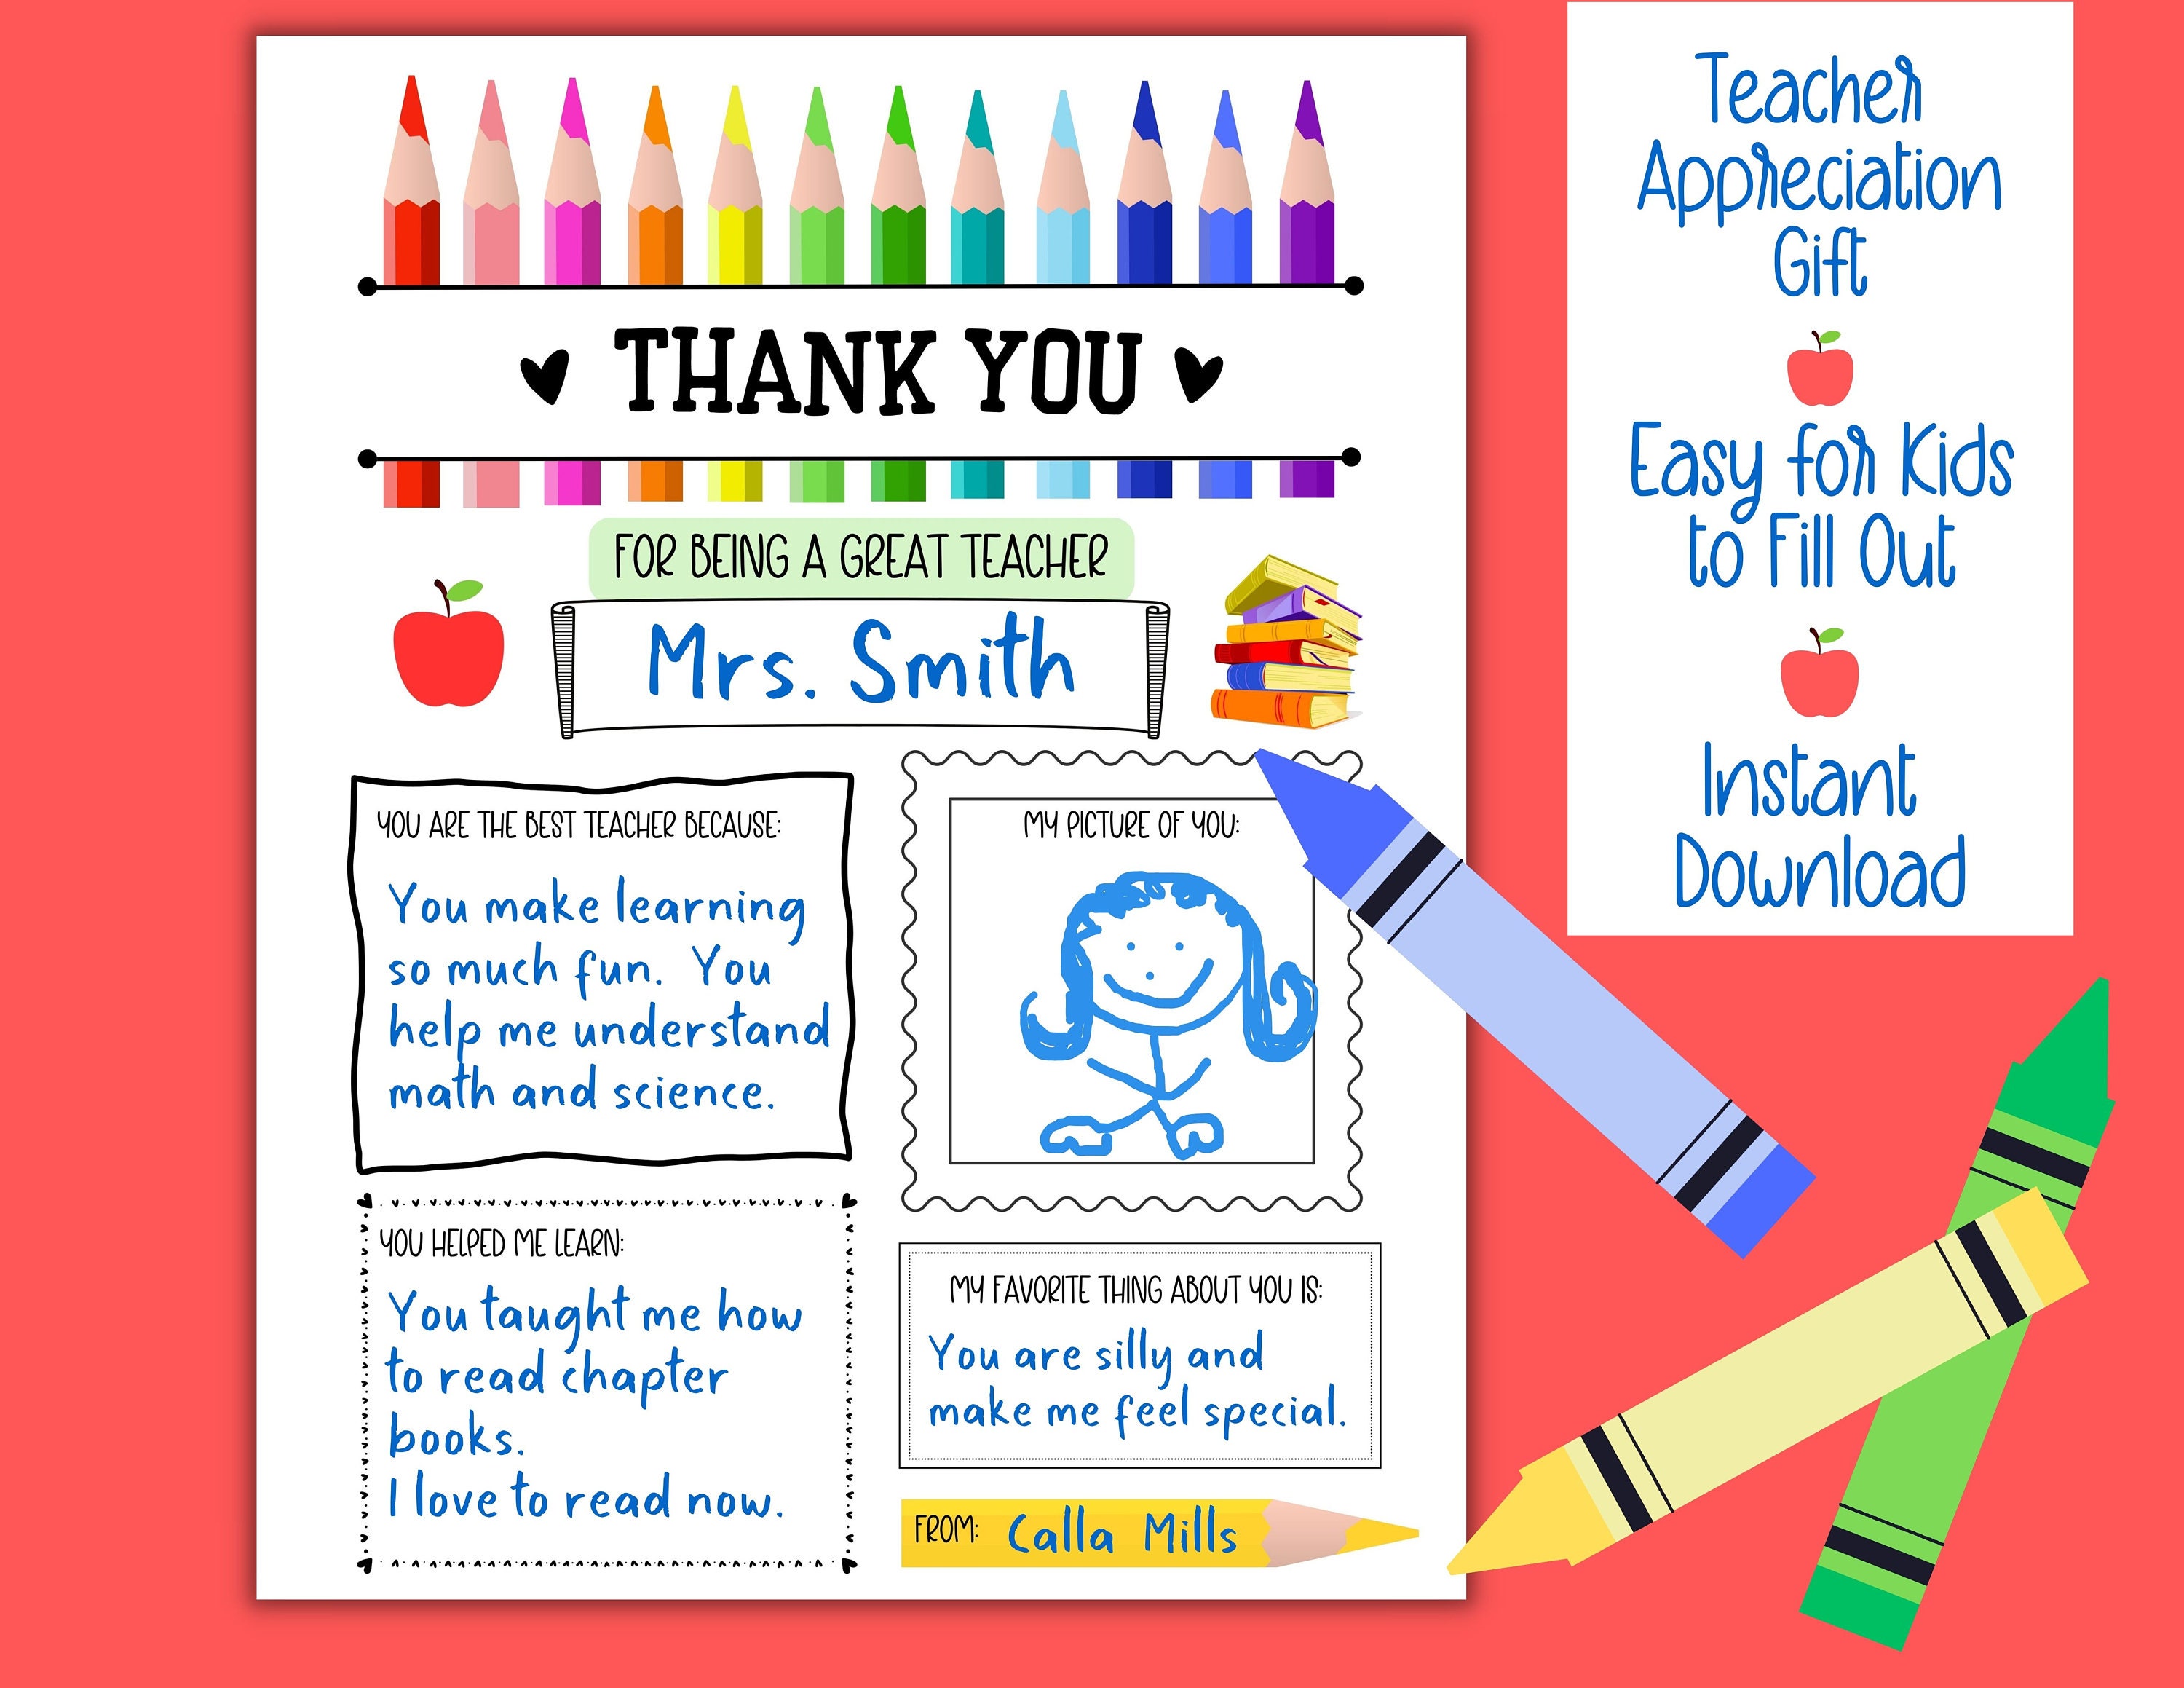 THANK YOU
FOR BEING A GREAT TEACHER
Mrs. Smith
YOU ARE THE BEST TEACHER BECAUSE:
You make learning
so much fun. You
help me understand
math and science.
MY PICTURE OF YOU:
YOU HELPED ME LEARN:
You taught me how
to read chapter
books.
I love to read now.
MY FAVORITE THING ABOUT YOU IS:
You are silly and
make me feel special.
FROM: Calla Mills
Teacher
Appreciation
Gift
Easy for Kids
to Fill Out
Instant
Download